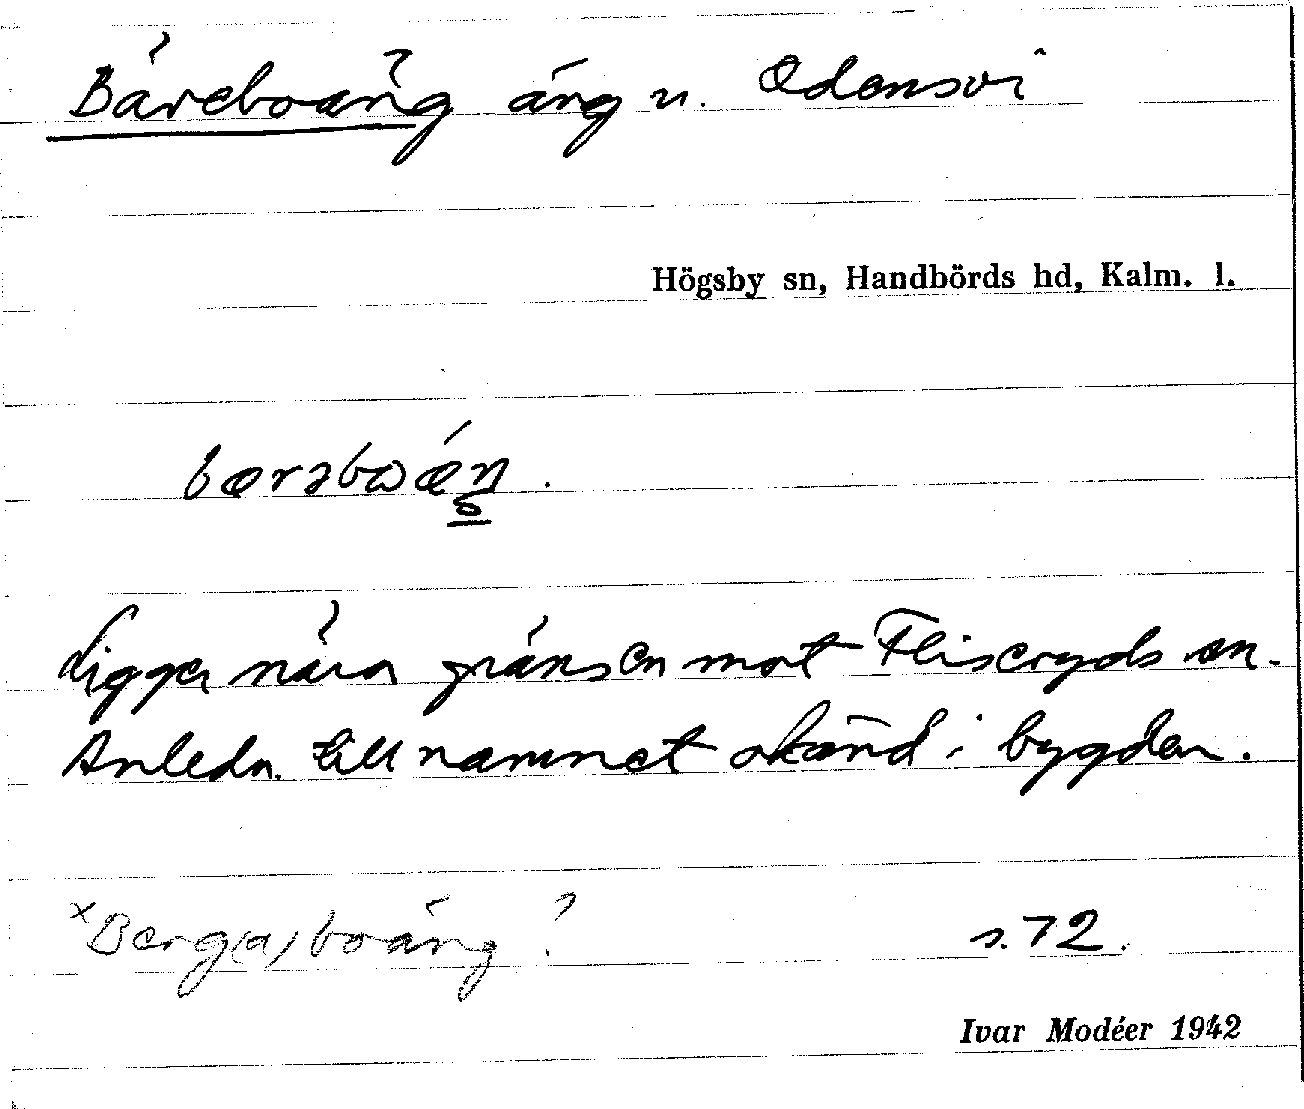 Bäreboäng äng u. Odensvi
Högsby sn, Handbörds hd, Kalm. l.
bærəbωǽŋ.
Ligger nära gränsen mot Fliseryds sn.
Anledn. till namnet okänd i bygden.
×Berg(a)boäng? s. 72.
Ivar Modéer 1942